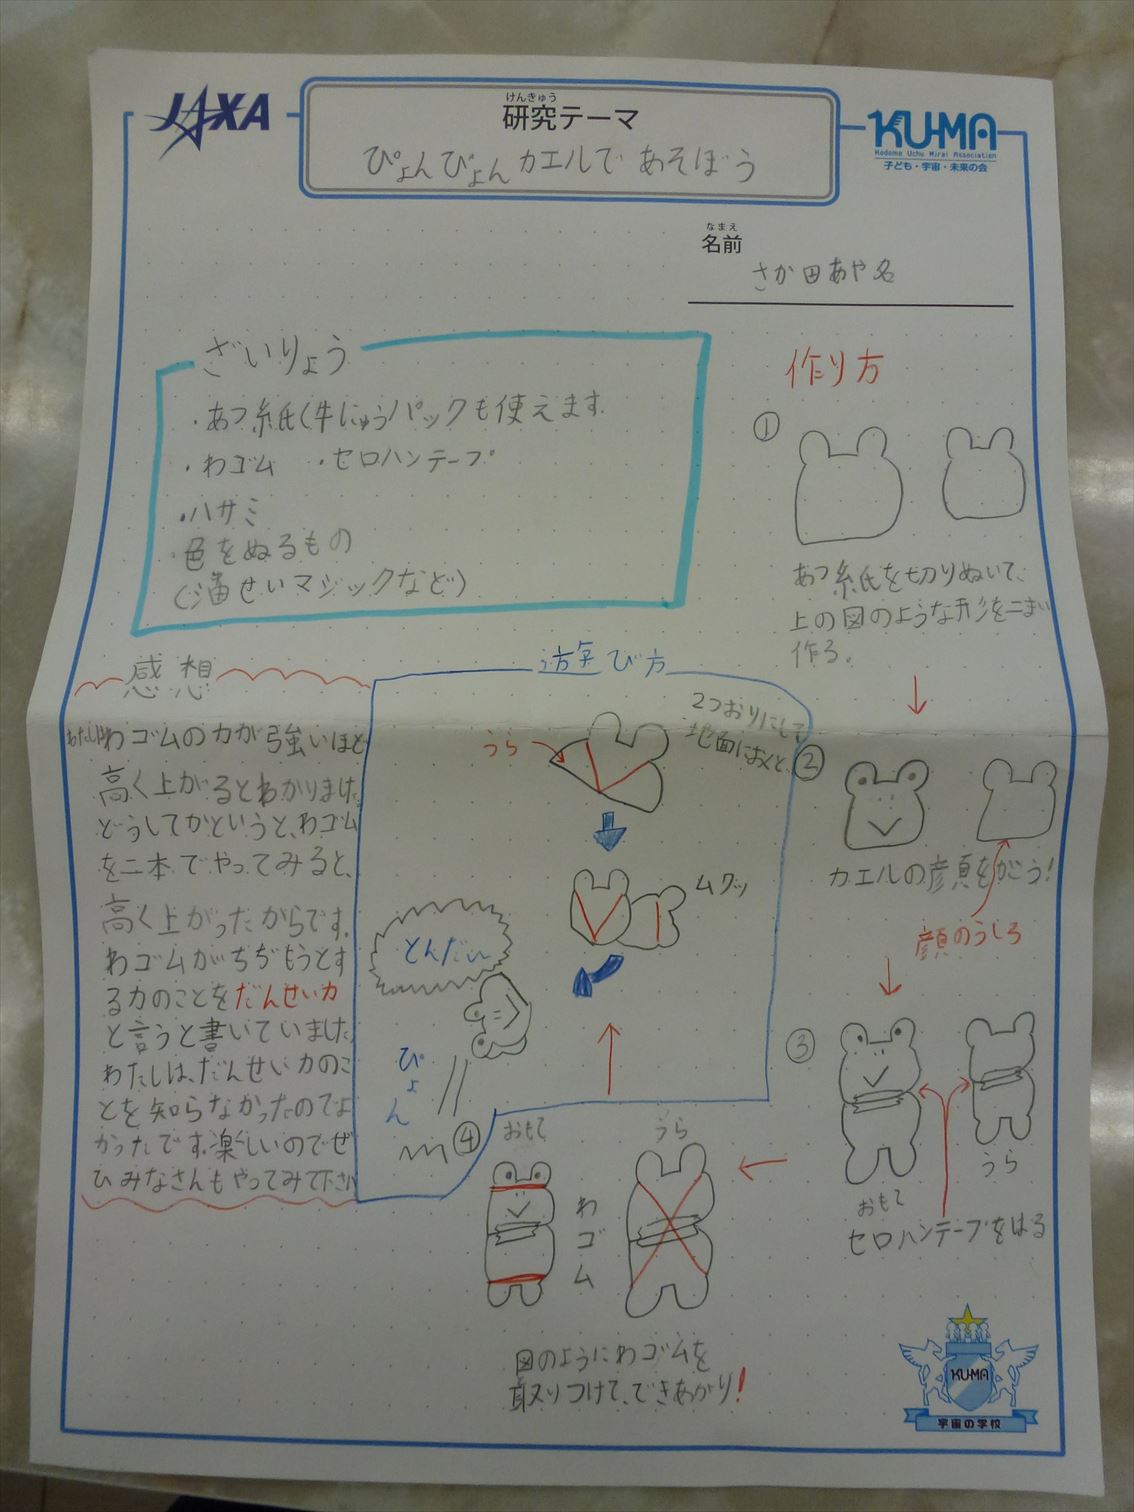 JAXA
けんきゅう
研究テーマ
ぴょんぴょんカエルであそぼう
KU-MA
Kodomo Uchu Mirai Association
子ども・宇宙・未来の会
なまえ
名前
さか田あや名
ざいりょう
・あつ紙(牛にゅうパックも使えます
・わゴム ・セロハンテープ
・ハサミ
・色をぬるもの
(油せいマジックなど)
作り方
①
あつ紙を切りぬいて、
上の図のような形を二まい
作る。
②
カエルの顔をかこう!
顔のうしろ
③
おもて
うら
セロハンテープをはる
④
おもて
うら
わゴム
図のようにわゴムを
取りつけて、できあがり!
遊び方
2つおりにして
地面におくと、
うら
ムクッ
とんだぃ
ぴょん
感想
わたしはわゴムの力が強いほど
高く上がるとわかりました。
どうしてかというと、わゴム
を二本でやってみると、
高く上がったからです。
わゴムがちぢもうとす
る力のことをだんせい力
と言うと書いていました。
わたしは、だんせい力のこ
とを知らなかったのでよ
かったです。楽しいのでぜ
ひみなさんもやってみて下さい
KUMA
宇宙の学校